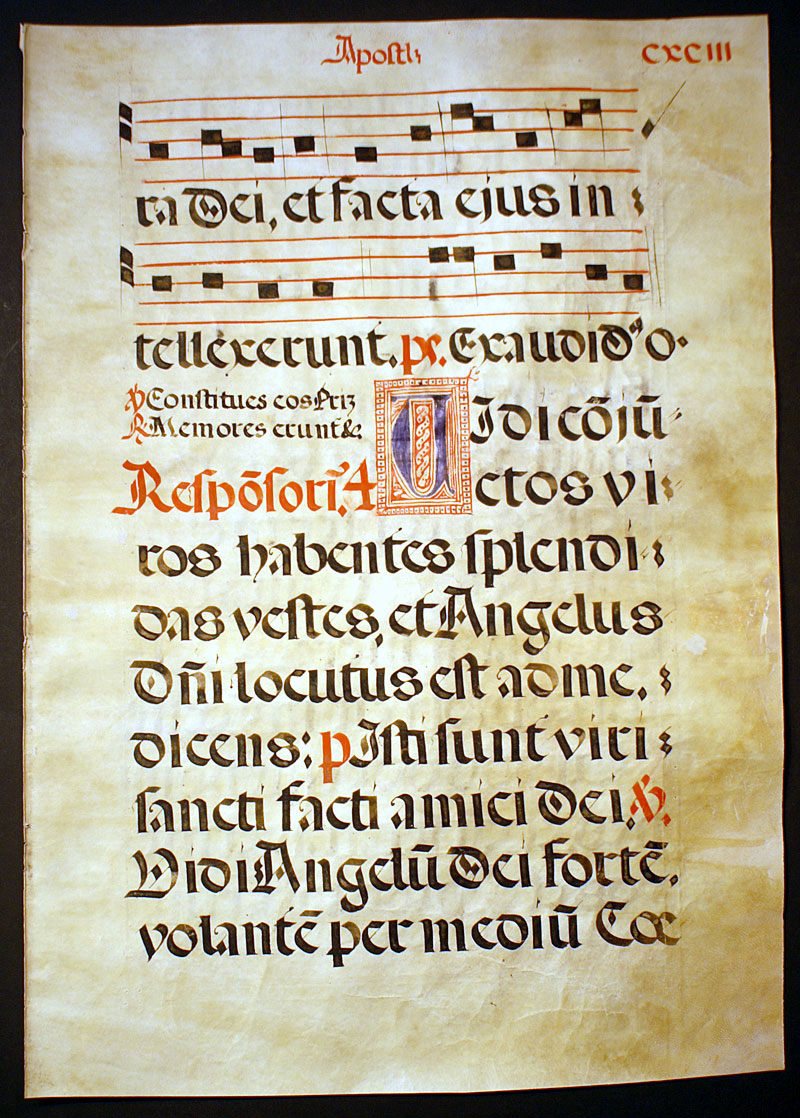 Apostl; CXCIII
ra Dei, et facta ejus in
tellexerunt. ps. Exaudi Dˢ o
℣ Constitues eos Priz
℟ Memores erunt &c
VIDI cōjū
Respōsoriˀ. 4 ctos vi
ros habentes splendi
das vestes, et Angelus
Dn̄i locutus est ad me,
dicens: p Isti sunt viri
sancti facti amici Dei. ℣.
Vidi Angelū Dei fortē,
volantē per mediū Cœ